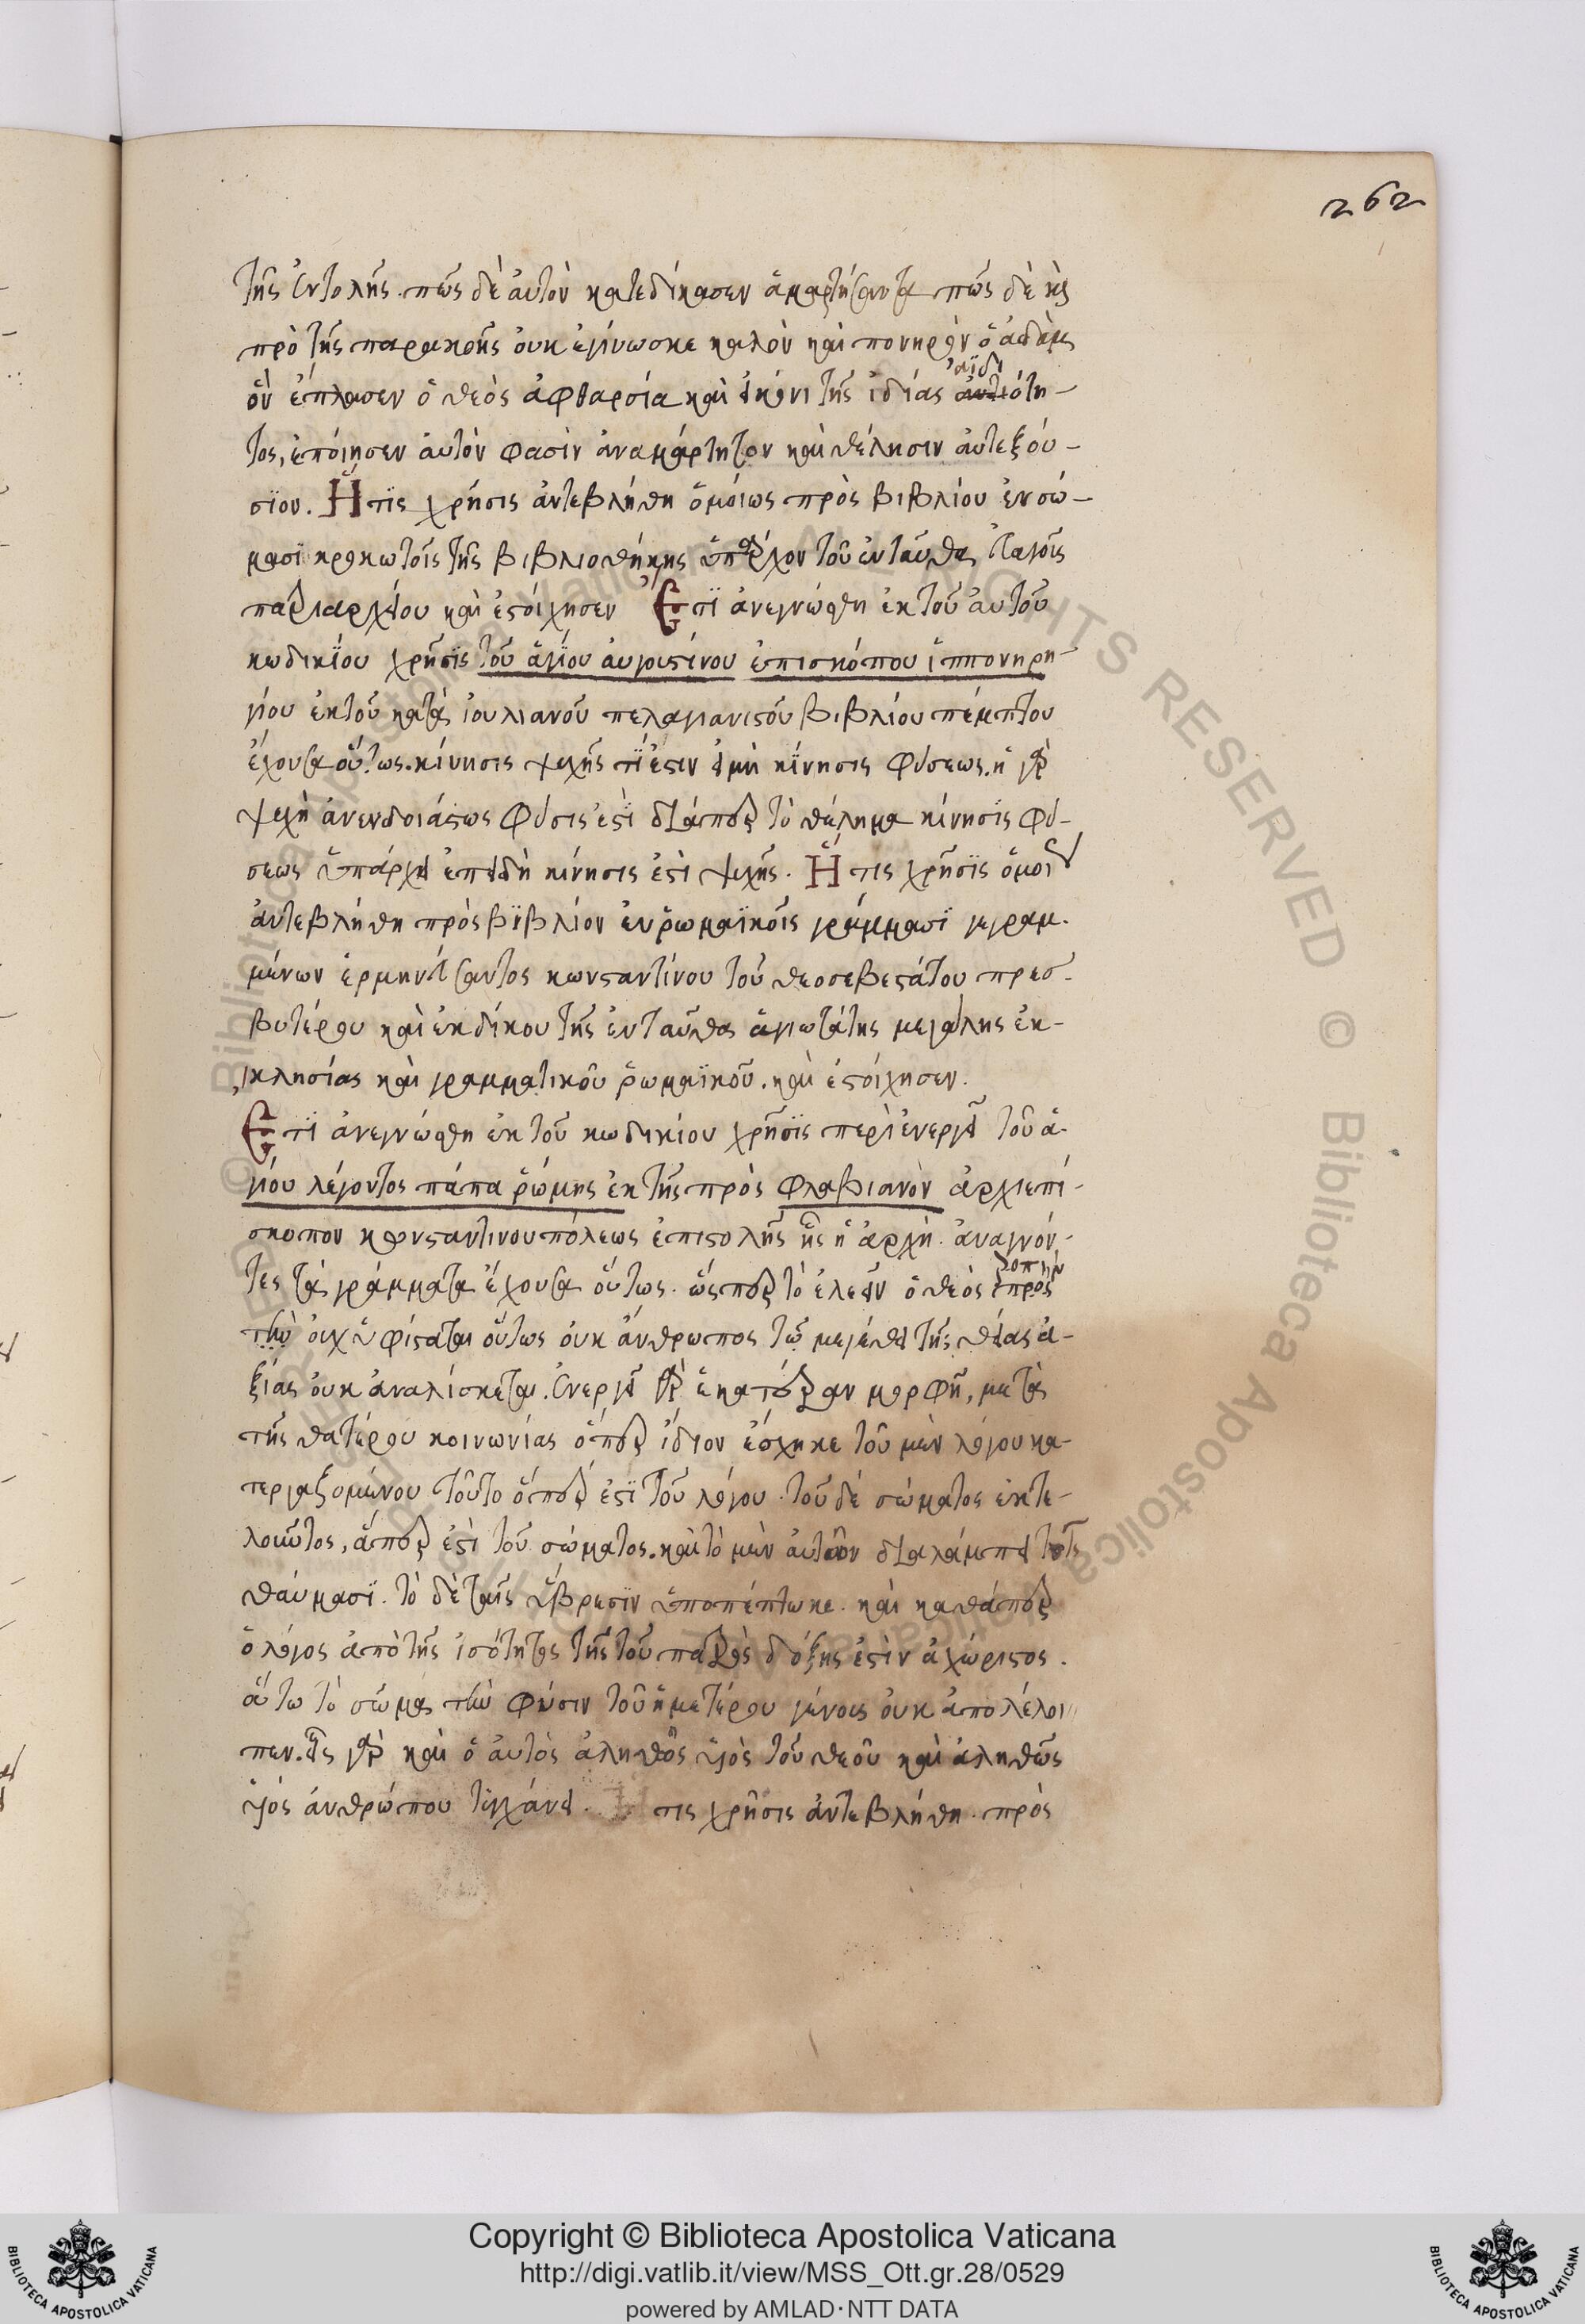 262
τῆς ἐντολῆς. πῶς δὲ ἀυτὸν κατεδίκασεν ἁμαρτήσαντα πῶς δὲ κỳ
πρὸ τῆς παρακοῆς ὀυκ ἐγίνωσκε καλὸν καὶ πονηρὸν ὁ ἀδὰμ
ὃν ἔπλασεν ὁ θεὸς ἀφθαρσία καὶ εἰκόνι τῆς ἰδίας ἀϊδιότη-
τος, ἐποίησεν ἀυτὸν φασὶν ἀναμάρτητον καὶ θέλησιν ἀυτεξόυ-
σϊον. Ἥ τϊς χρήσις ἀντεβλήθη ὁμοίως πρὸς βιβλίου ἐν σώ-
μασϊ κροκωτοῖς τῆς βιβλιοθήκης ὑπάρχον τοῦ ἐνταῦθα ἐυαγοῦς
πατριαρχείου καὶ ἐστοίχησεν Ἔτϊ ἀνεγνώσθη ἐκ τοῦ ἀυτοῦ
κωδικΐου χρῆσϊς τοῦ ἁγΐου ἀυγουστίνου ἐπισκόπου ἱππονηρη-
γίου ἐκ τοῦ κατὰ ἰουλιανοῦ πελαγιανιστοῦ βιβλίου πέμπτου
ἔχουσα οὕτως. κίνησις ψυχῆς τΐ ἐστιν εἰ μὴ κΐνησις φύσεως. ἡ γὰρ
ψυχὴ ἀνενδοιάστως φύσις ἐστϊ διάπερ τὸ θέλημα κίνησϊς φύ-
σεως ὑπάρχει ἐπειδὴ κίνησις ἐστὶ ψυχῆς. Ἥ τις χρῆσϊς ὁμοίως
ἀντεβλήθη πρὸς βϊβλίον ἐν ῥωμαϊκοῖς γράμμασϊ γεγραμ.
μένων ἑρμηνεύσαντος κωνσταντίνου τοῦ θεοσεβεστάτου πρεσ-
βυτέρου καὶ ἐκδίκου τῆς ἐνταῦθα ἁγιωτάτης μεγάλης ἐκ-
κλησίας καὶ γραμματικοῦ ῥωμαϊκοῦ. καὶ ἐστοίχησεν.
Ἔτϊ ἀνεγνώσθη ἐκ τοῦ κωδικίου χρῆσϊς περὶ ἐνεργεί τοῦ ἁ-
γίου λέγοντος πάπα ῥώμης ἐκ τῆς πρὸς φλαβιανὸν ἀρχιεπί-
σκοπον κωνσταντινουπόλεως ἐπιστολῆς ἧς ἡ ἀρχὴ. ἀναγνόν-
τες τὰ γράμματα ἔχουσα οὕτως. ὥσπερ τὸ ἐλεεῖν ὁ θεὸς ῥοπὴν πρὸς
τὴν ὀυχ ὑφίσταται οὕτως ὀυκ ἄνθρωπος τῷ μεγέθει τῆς θείας ἀ-
ξίας ὀυκ ἀναλίσκεται. ἐνεργεῖ γὰρ ἑκατέραν μορφῆ, μετὰ
τῆς θατέρου κοινωνίας ὅπερ ἴδιον ἔσχηκε τοῦ μὲν λόγου κα-
τεργαζομένου τοῦτο ὅπερ ἐστϊ τοῦ λόγου. τοῦ δὲ σώματος ἐκτε-
λοῦντος, ἅπερ ἐστὶ τοῦ σώματος. καὶ τὸ μὲν ἀυτῶν διαλάμπει τοῖς
θαύμασϊ. τὸ δὲ ταῖς ὕβρεσϊν ὑποπέπτωκε. καὶ καθάπερ
ὁ λόγος ἀπὸ τῆς ἰσότητος τῆς τοῦ πατρὸς δόξης ἐστὶν ἀχώριστος.
οὕτω τὸ σῶμα τὴν φύσιν τοῦ ἡμετέρου γένους ὀυκ ἀπολέλοι
πεν. εἷς γὰρ καὶ ὁ ἀυτὸς ἀληθῶς ὑιὸς τοῦ θεοῦ καὶ ἀληθῶς
ὑιὸς ἀνθρώπου τυγχάνει. Ἥ τις χρῆσις ἀντεβλήθη. πρὸς
© Biblioteca Apostolica Vaticana ALL RIGHTS RESERVED © Biblioteca Apostolica Vaticana
Copyright © Biblioteca Apostolica Vaticana
http://digi.vatlib.it/view/MSS_Ott.gr.28/0529
powered by AMLAD·NTT DATA
BIBLIOTECA APOSTOLICA VATICANA
BIBLIOTECA APOSTOLICA VATICANA